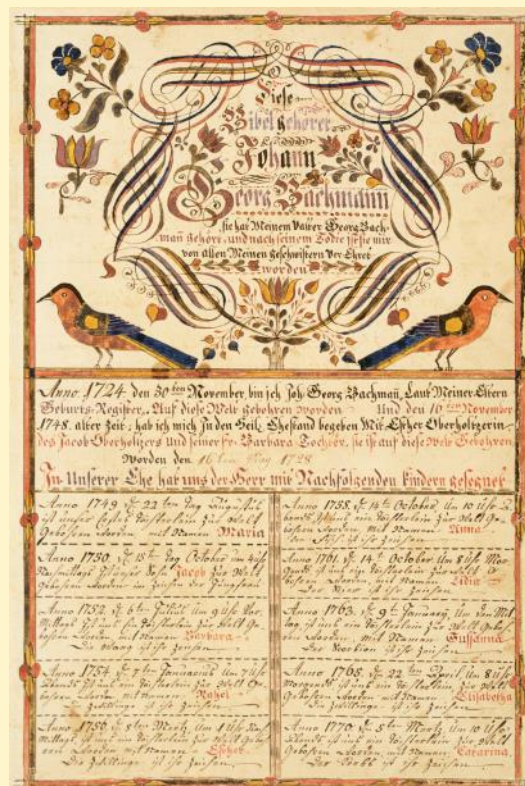 Diese
Bibel gehöret
Johann
Georg Bachmañ
sie hat Meinem Vatter Georg Bach-
mañ gehört, und nach seinem Todte ist sie mir
von allen Meinen geschwistern Ver Ehret
worden
Anno 1724 den 30ten November, bin ich Joh Georg Bachmañ, Laut Meiner Eltern
Geburts-Register, Auf diese Welt gebohren worden Und den 16ten November
1748. alter Zeit, hab ich mich in den Heil. Ehestand begeben Mit Esther Oberholtzerin
des Jacob Oberholtzers und seiner fr. Barbara Tochter, sie ist auf diese Welt Gebohren
Worden den 16ten May 1728
In Unserer Ehe hat uns der Herr mit Nachfolgenden kindern gesegnet
Anno 1749 22ten tag
ist unser Töchterlein zur Welt
Gebohren worden mit Namen Maria
Anno 1750 15ten tag October um 4 uhr
Nachmittags Sohn Jacob zur Welt
Gebohren worden im Zeichen der Jungfrau
Anno 1752 6ten um 9 uhr Vor-
Mittags ist uns ein Töchterlein zur Welt Geboh-
ren worden mit Namen Barbara
Die Waag ist ihr Zeichen
Anno 1754 7ten um 7 uhr
ist uns ein Töchterlein zur Welt
Gebohren worden mit Namen Rahel
Die Zwillinge ist ihr Zeichen
Anno 1756 8ten Martz um 1 uhr
Mittags ist uns ein Töchterlein zur Welt Geboh-
ren worden mit Namen Esther
Die Zwillinge ist ihr Zeichen
Anno 1758 14ten October um 10 uhr
ist uns ein Töchterlein zur Welt Ge-
bohren worden mit Namen Anna
ist ihr Zeichen
Anno 1761 14t October um 8 uhr Mor-
gens ist uns ein Töchterlein zur Welt Ge-
bohren worden mit Namen Lidia
Der Stier ist ihr Zeichen
Anno 1763 9ten January um Mit-
tag ist uns ein Töchterlein zur Welt Geboh-
ren worden mit Namen Sussanna
Der Scorbion ist ihr Zeichen
Anno 1765 22ten April um 8 uhr
Morgends ist uns ein Töchterlein zur Welt
Gebohren worden mit Namen Elisabetha
ist ihr Zeichen
Anno 1770 5ten Martz um 10 uhr
Abends ist uns ein Töchterlein zur Welt
Gebohren worden mit Namen Catarina
ist ihr Zeichen